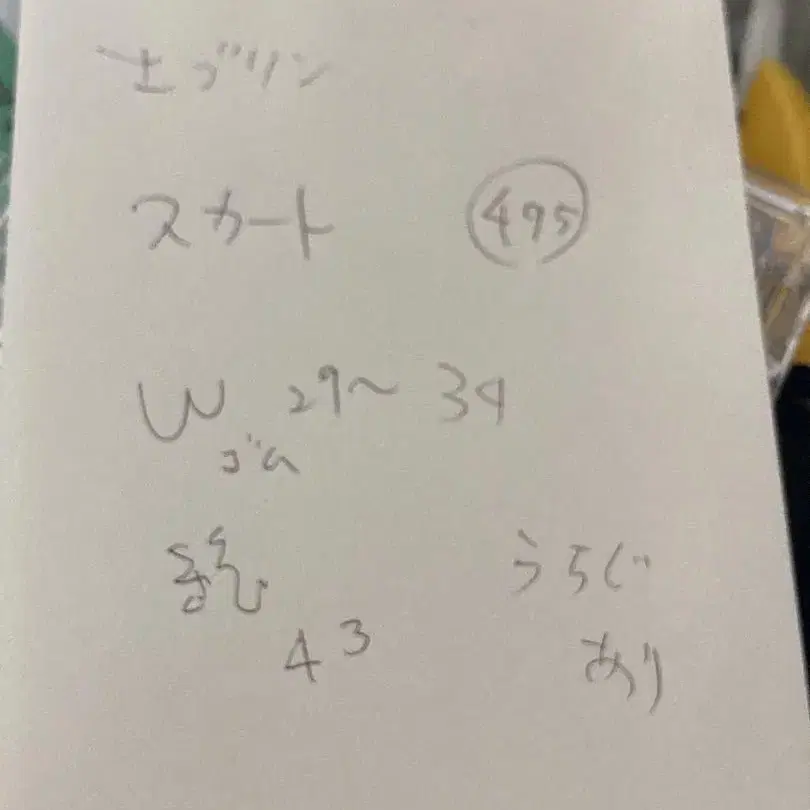 エブリン
スカート 495
W 27〜34
ゴム
総
43
うらじ
あり